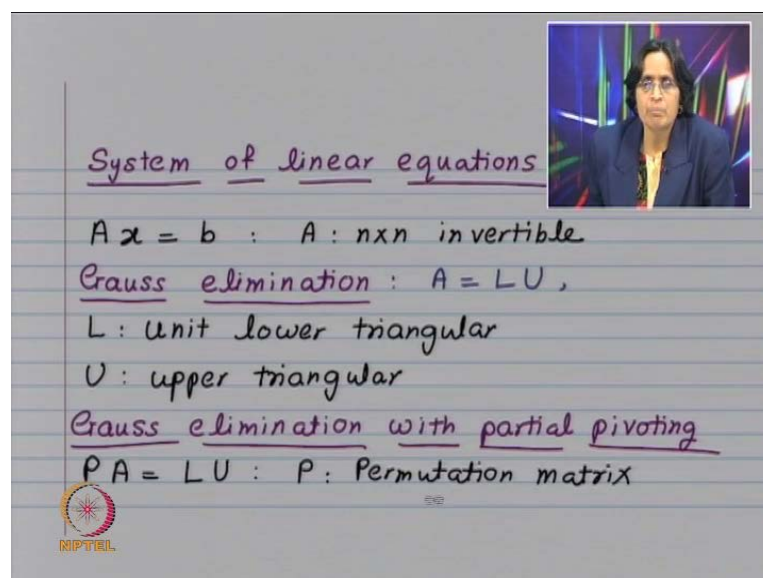 System of linear equations
Ax = b : A : nxn invertible
Gauss elimination : A = LU,
L : unit lower triangular
U : upper triangular
Gauss elimination with partial pivoting
PA = LU : P : Permutation matrix
NPTEL